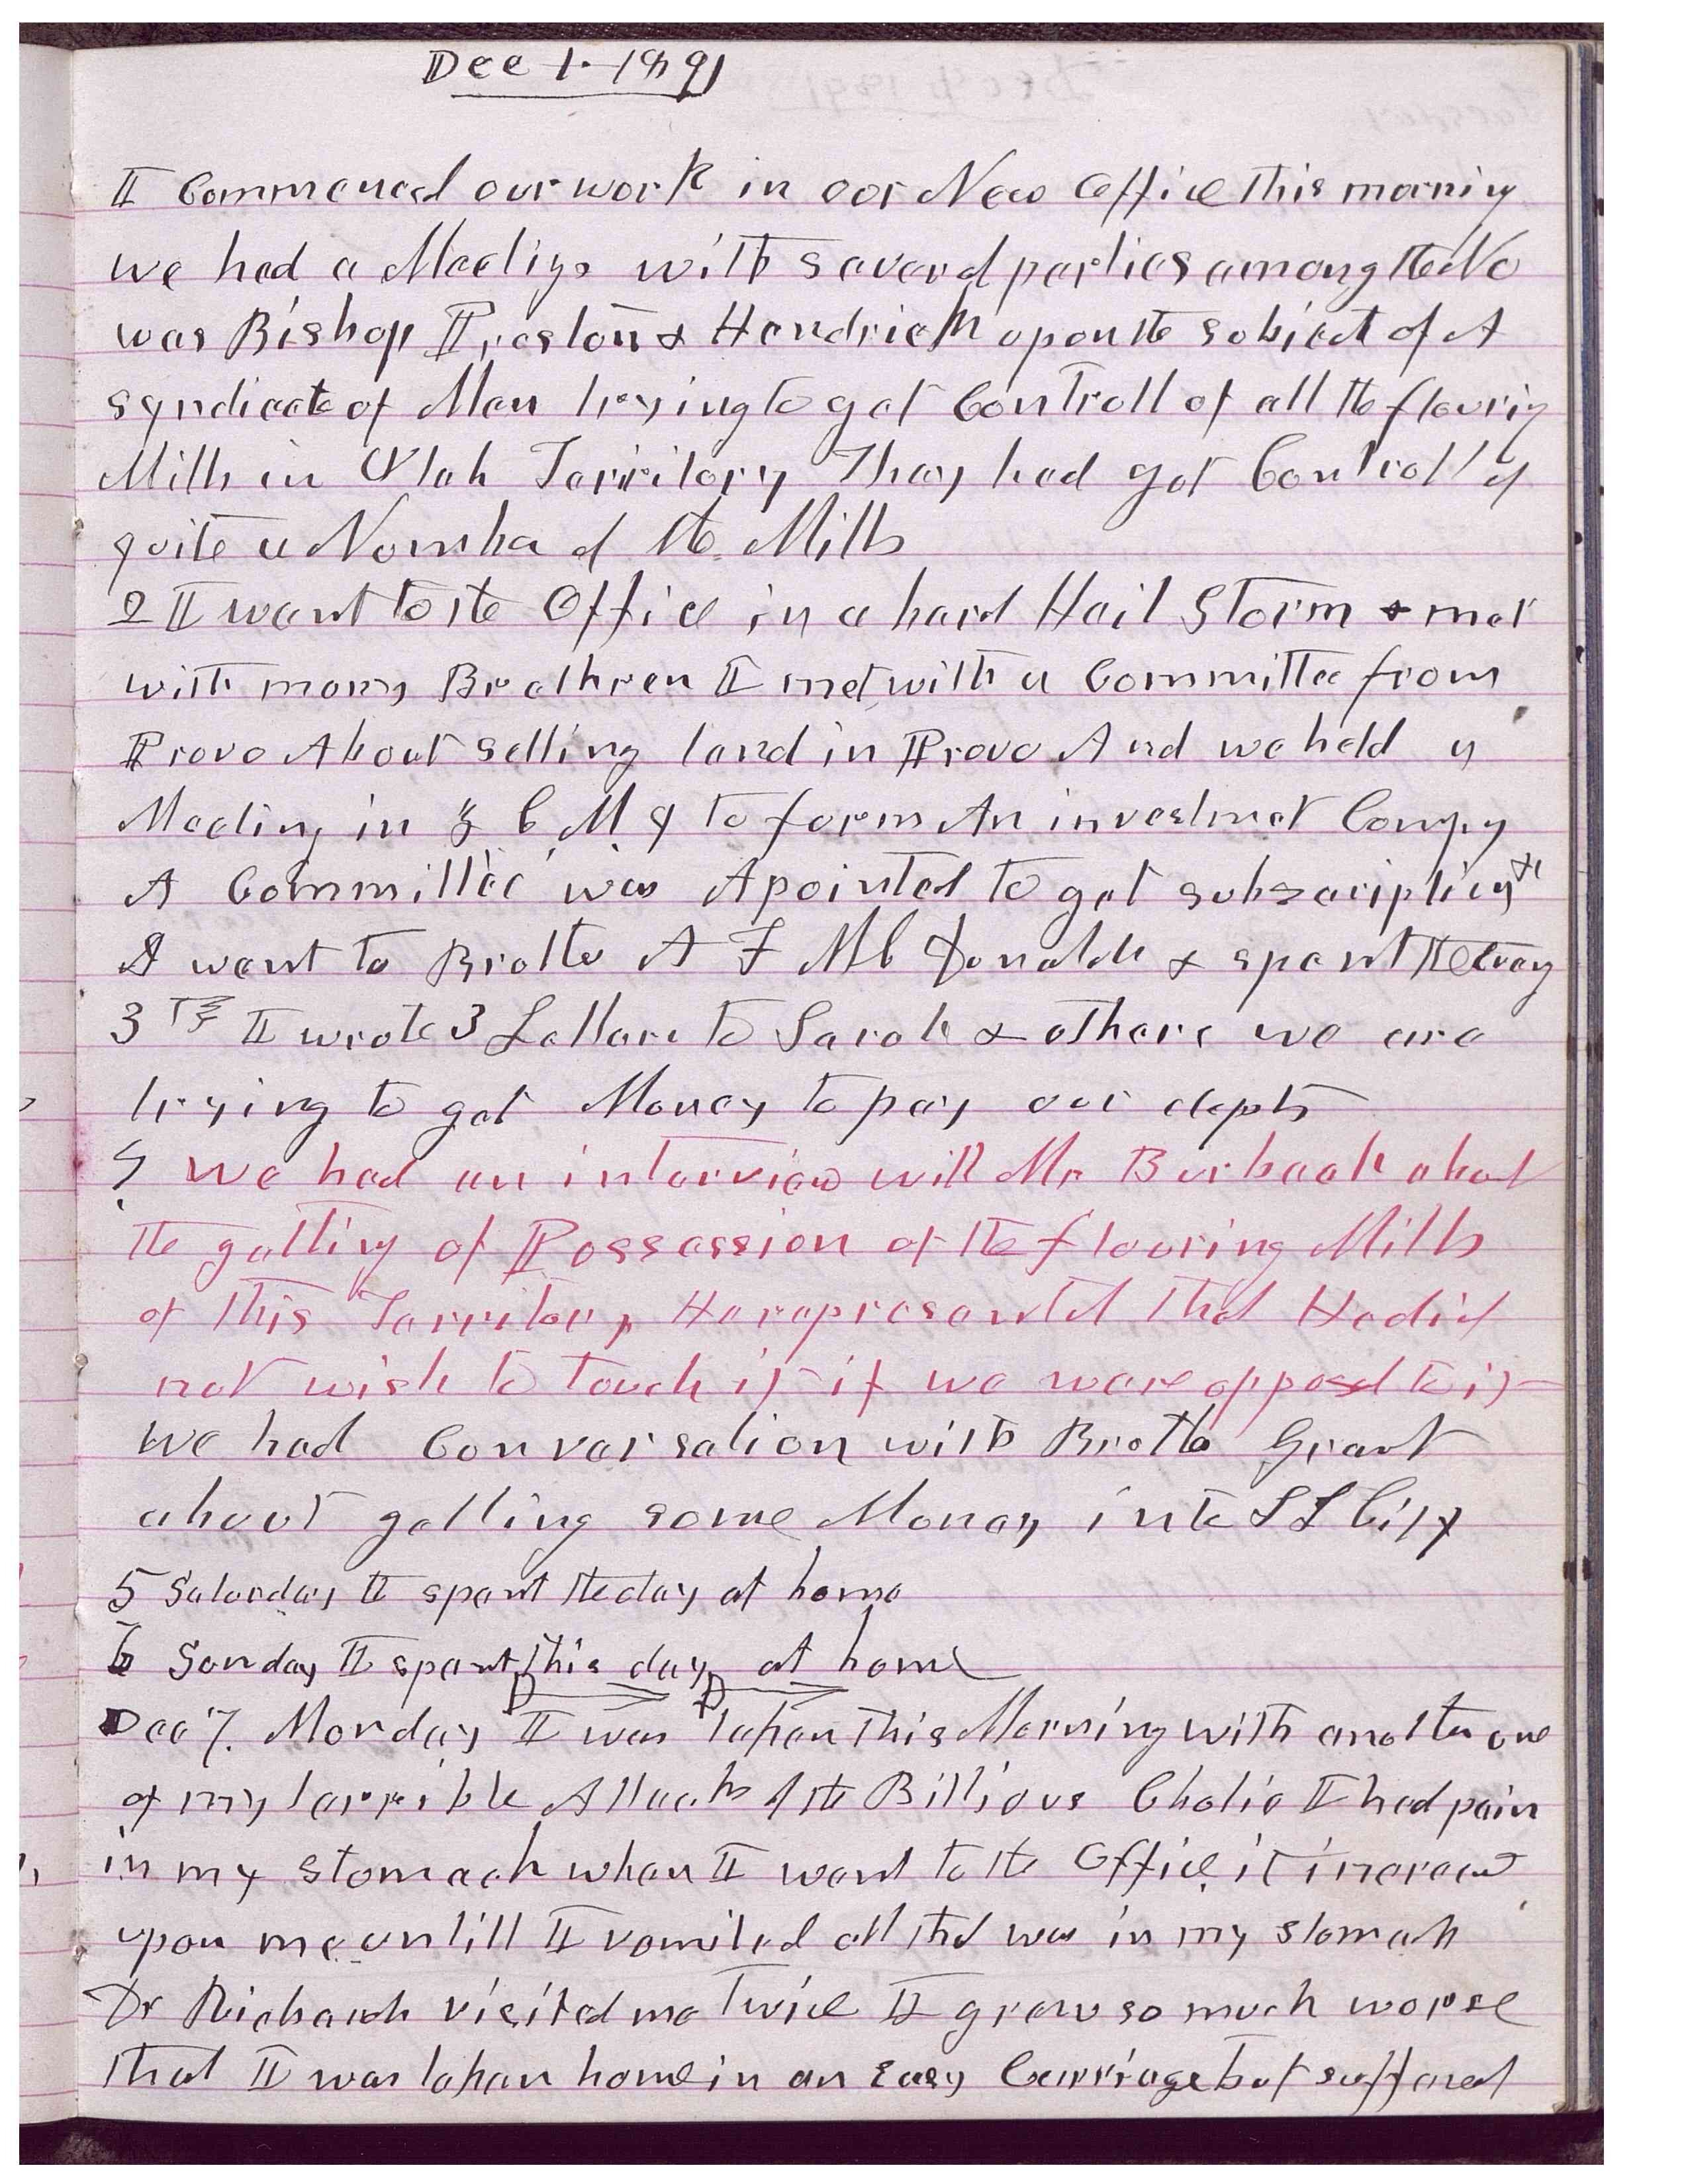 Dec 1. 1891
I Commenced our work in our New Office this morning
we had a Meeting with several parties among the No
was Bishop Preston & Hendrick upon the subject of A
syndicate of Men trying to get Controll of all the flouring
Mills in Utah Territory They had got Controll of
quite a Number of the Mills
2 I went to the Office in a hard Hail Storm & met
with many Brethren I met with a Committee from
Provo About selling land in Provo And we held a
Meeting in Z C M I to form An investmet Compny
A Committee was Apointed to get subscriptions
I went to Brother A F McDonalds & spent the
3 I wrote 3 Letters to Sarah & others we are
trying to get Money to pay our depts
we had an interview with Mr Burbank about
the getting of Possession of the flouring Mills
of this Territory He represented that He did
not wish to touch it if we were opposed to it
we had Conversation with Brother Grant
about getting some Money into S L City
5 Saturday I spent the day at home
6 Sunday I spent this day at home
Dec 7. Monday I was taken this Morning with another one
of my terrible Attacks of the Billious Cholic I had pain
in my stomach when I went to the Office it increased
upon me untill I vomited all that was in my stomach
Dr Richards visited me Twice I grew so much worse
that I was taken home in an easy Carriage but suffered